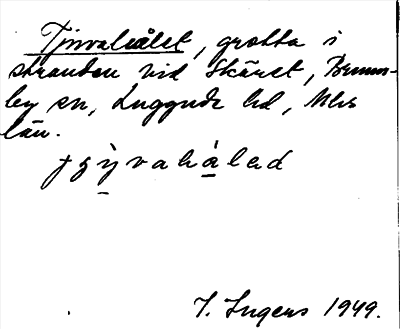 Tjuvahålet, grotta i
stranden vid Skäret, Brunn-
by sn, Luggude hd, Mlhs
län.
J. Ingers 1949.